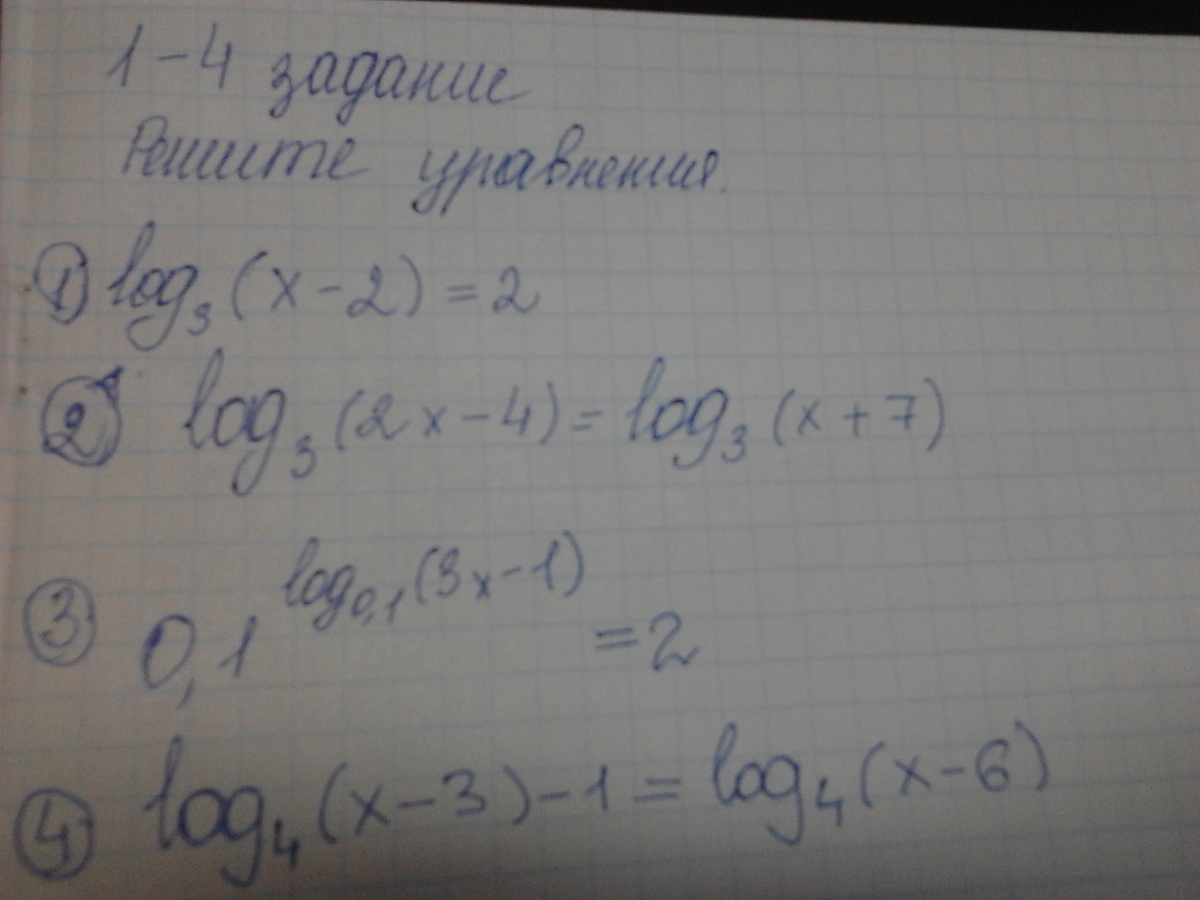 1-4 задание
Решите уравнения.
① log₃(x-2)=2
② log₃(2x-4)=log₃(x+7)
③ 0,1^log₀,₁(3x-1) =2
④ log₄(x-3)-1=log₄(x-6)